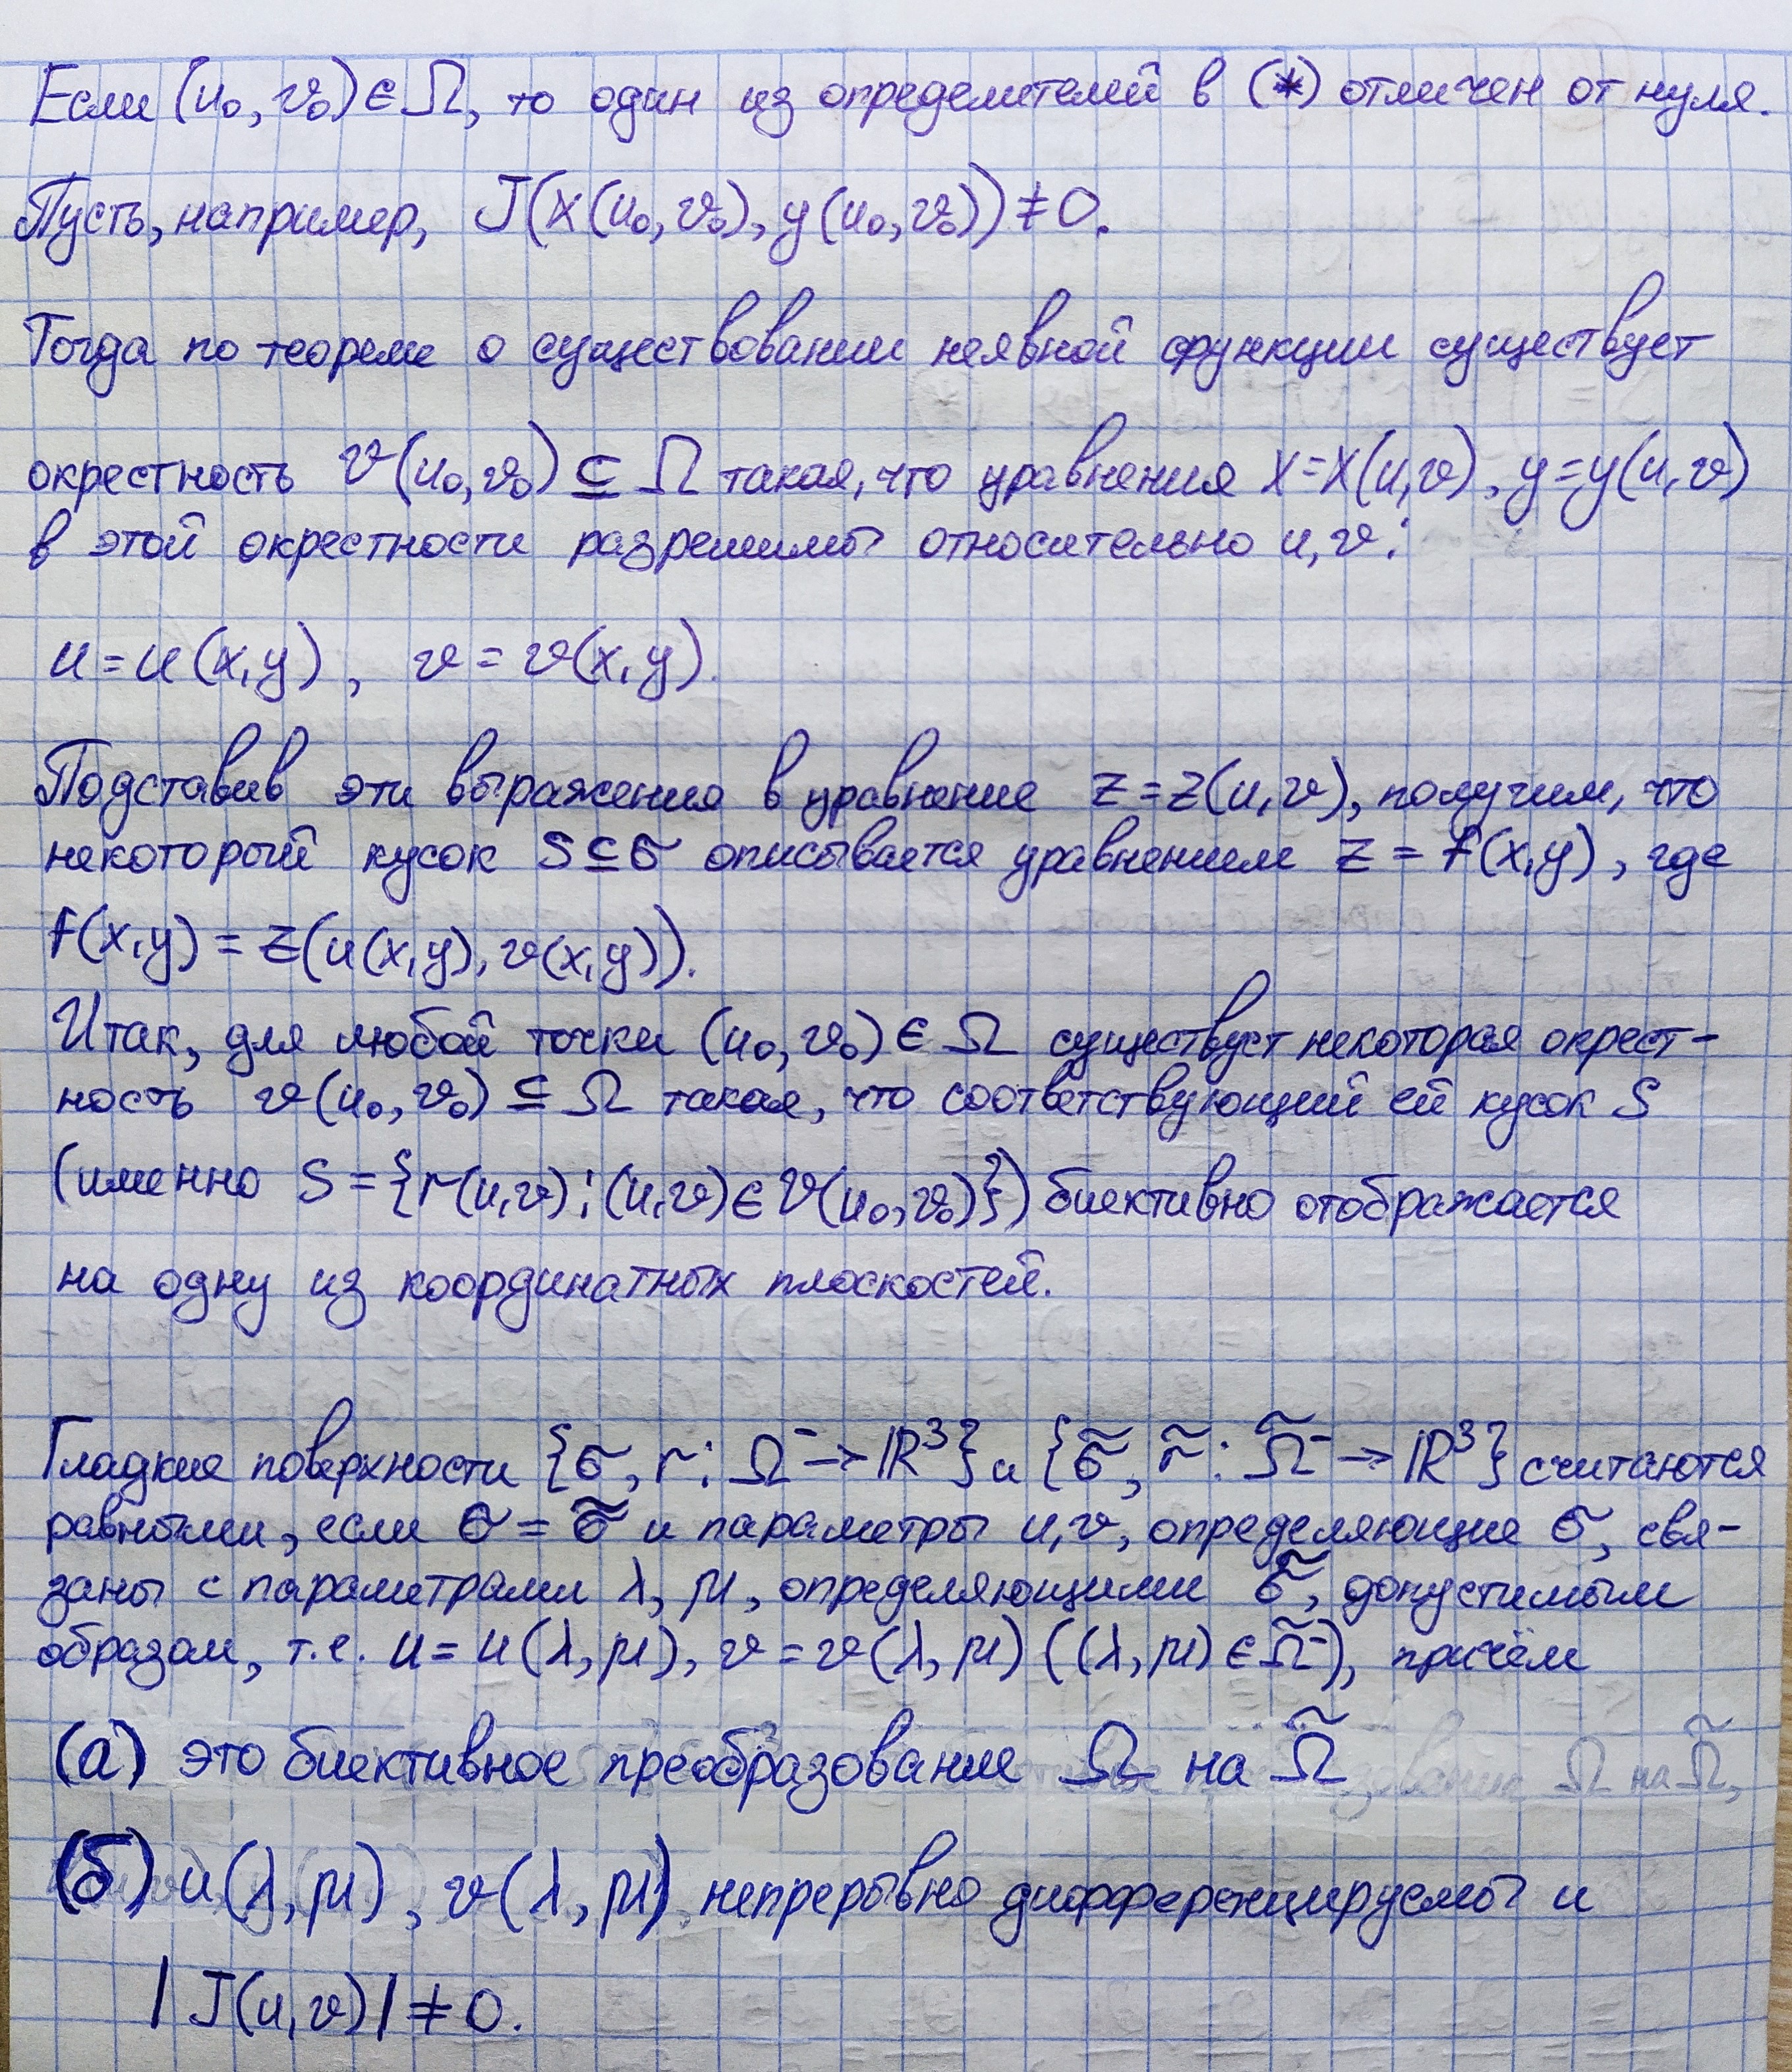 Если (u₀, v₀) ∈ Ω, то один из определителей в (*) отличен от нуля.
Пусть, например, J(x(u₀, v₀), y(u₀, v₀)) ≠ 0.
Тогда по теореме о существовании неявной функции существует
окрестность v(u₀, v₀) ⊆ Ω такая, что уравнения x = x(u, v), y = y(u, v)
в этой окрестности разрешимы относительно u, v:
u = u(x, y), v = v(x, y).
Подставив эти выражения в уравнение z = z(u, v), получим, что
некоторый кусок S ⊆ σ описывается уравнением z = f(x, y), где
f(x, y) = z(u(x, y), v(x, y)).
Итак, для любой точки (u₀, v₀) ∈ Ω существует некоторая окрест-
ность v(u₀, v₀) ⊆ Ω такая, что соответствующий ей кусок S
(именно S = {r(u, v) : (u, v) ∈ v(u₀, v₀)}) биективно отображается
на одну из координатных плоскостей.
Гладкие поверхности {σ, r : Ω⁻ → ℝ³} и {σ̃, r̃ : Ω̃⁻ → ℝ³} считаются
равными, если σ = σ̃ и параметры u, v, определяющие σ, свя-
заны с параметрами λ, μ, определяющими σ̃, допустимым
образом, т.е. u = u(λ, μ), v = v(λ, μ) ((λ, μ) ∈ Ω̃⁻), причём
(а) это биективное преобразование Ω на Ω̃
(б) u(λ, μ), v(λ, μ) непрерывно дифференцируемы и
|J(u, v)| ≠ 0.